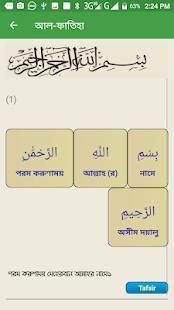 3G 2:24 PM
আল-ফাতিহা
بِسْمِ اللَّهِ الرَّحْمَٰنِ الرَّحِيمِ
(1)
الرَّحْمَٰنِ اللَّهِ بِسْمِ
পরম করুণাময় আল্লাহ (র) নামে
الرَّحِيمِ
অসীম দয়ালু
পরম করুণাময় মেহেরবান আল্লাহর নামে৷
Tafsir